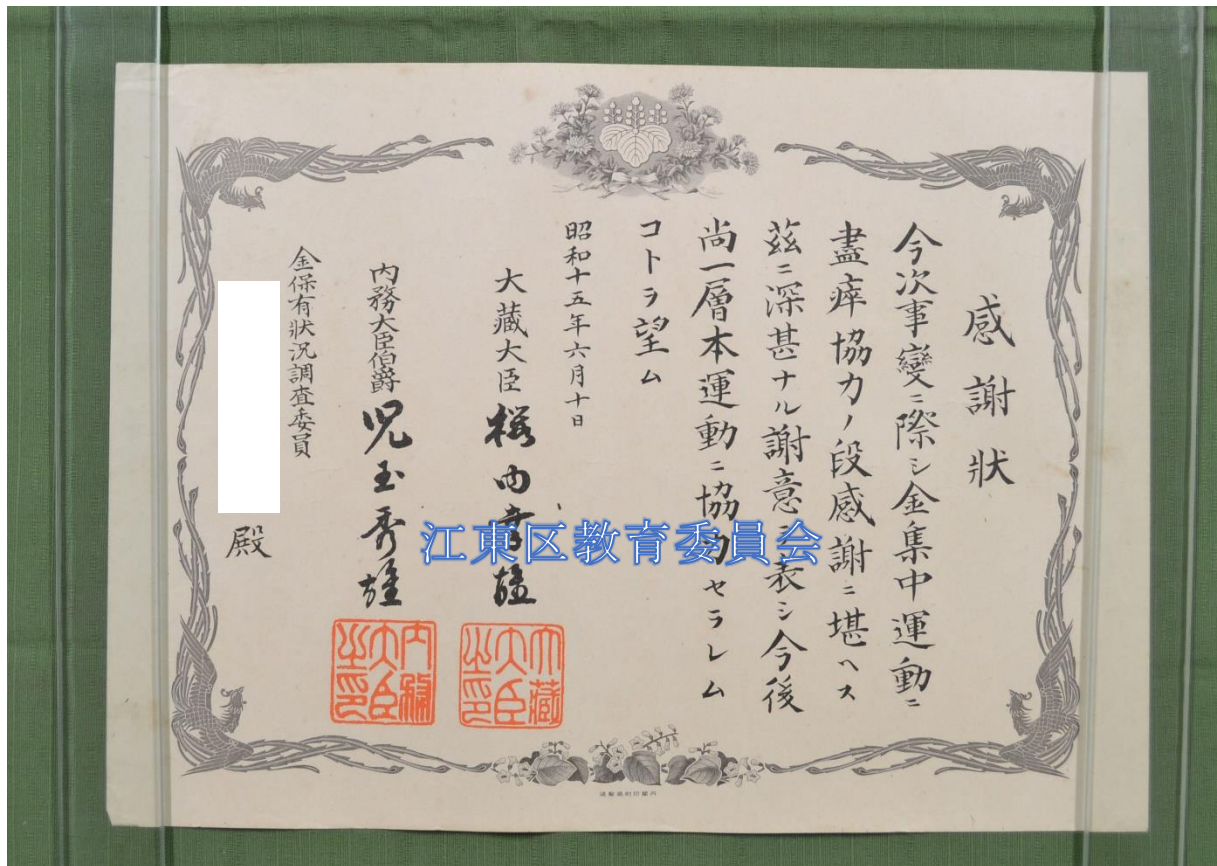 感謝狀
今次事變ニ際シ金集中運動ニ
盡瘁協力ノ段感謝ニ堪ヘス
茲ニ深甚ナル謝意ヲ表シ今後
尚一層本運動ニ協力セラレム
コトヲ望ム
昭和十五年六月十日
大藏大臣 櫻內幸雄
內務大臣伯爵 兒玉秀雄
金保有狀況調査委員
殿
大藏大臣之印
內務大臣之印
江東区教育委員会
內閣印刷局製造